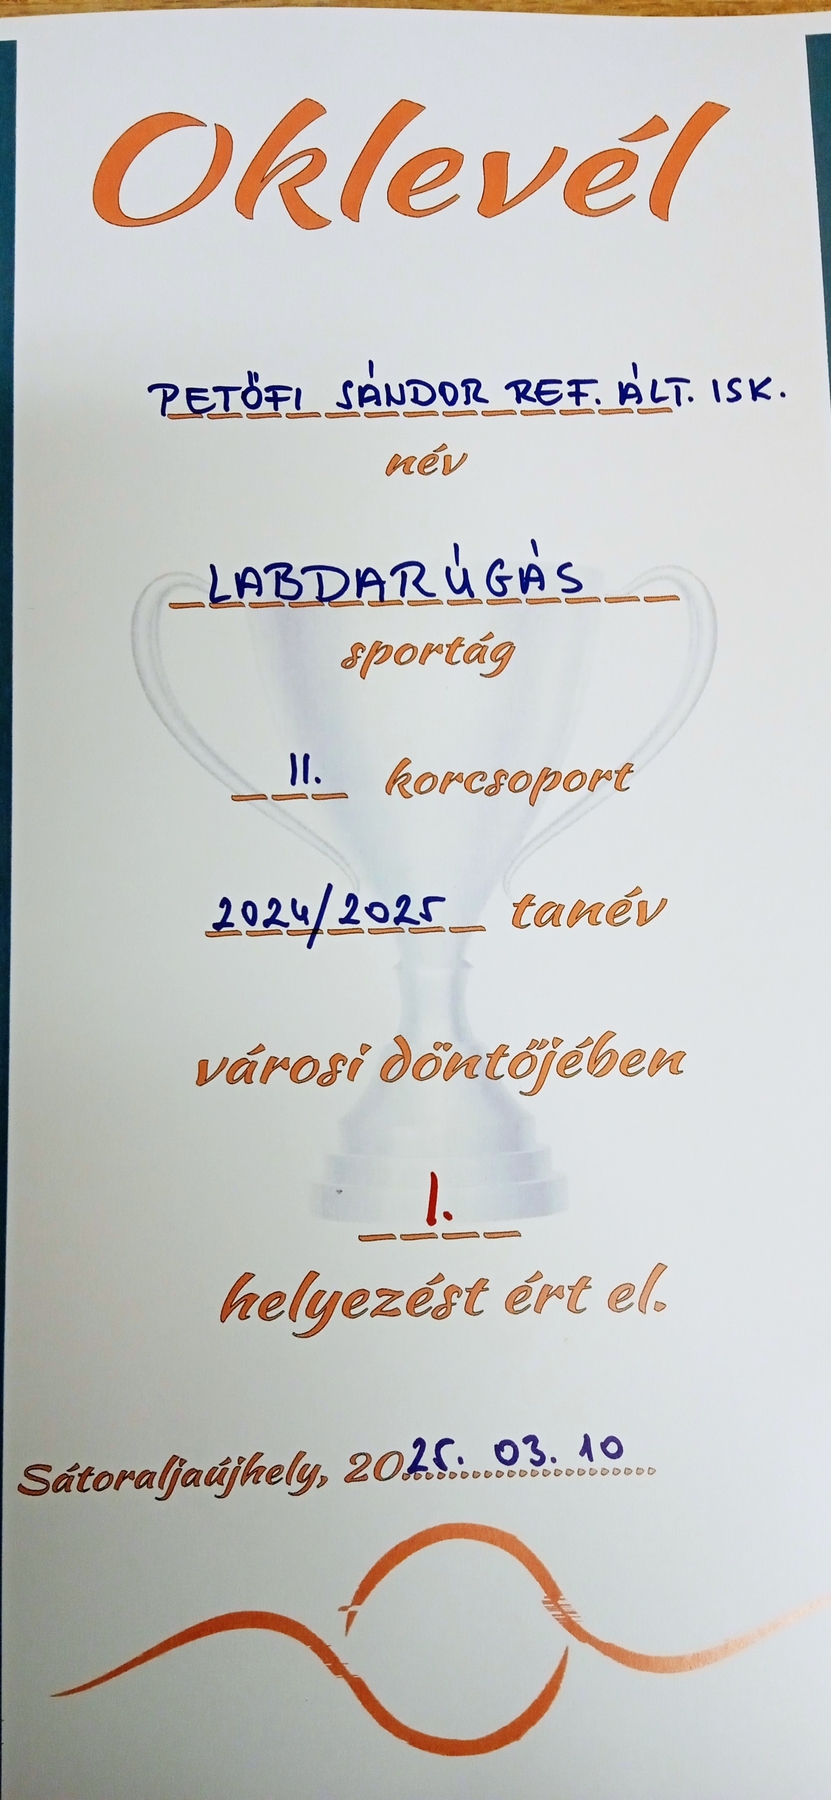 Oklevél
PETŐFI SÁNDOR REF. ÁLT. ISK.
név
LABDARÚGÁS
sportág
II. korcsoport
2024/2025 tanév
városi döntőjében
I.
helyezést ért el.
Sátoraljaújhely, 2025. 03. 10